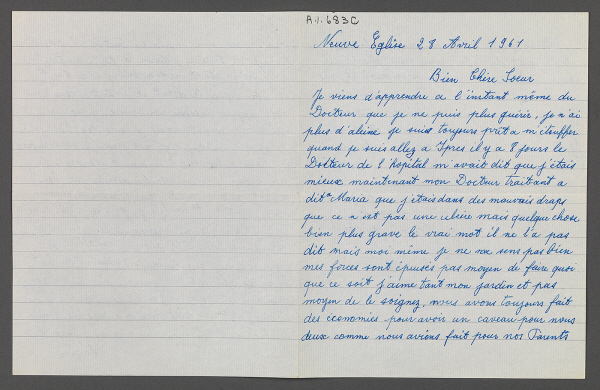 A.1.683C
Neuve Eglise 28 Avril 1961
Bien Chère Soeur
Je viens d'apprendre a l'instant même du
Docteur que je ne puis plus guérir, je n'ai
plus d'aleine je suis toujours prêt a m'étouffer
quand je suis allez a Ypres il y a 8 jours le
Docteur de l'hopital m'avait dit que j'étais
mieux maintenant mon Docteur traitant a
dit a Maria que j'étais dans des mauvais draps
que ce n'est pas une ulcère mais quelque chose
bien plus grave le vrai mot il ne l'a pas
dit mais moi même je ne me sens pas bien
mes forces sont épuisés pas moyen de faire quoi
que ce soit j'aime tant mon jardin et pas
moyen de le soignez, nous avons toujours fait
des economies pour avoir un caveau pour nous
deux comme nous avions fait pour nos Parents